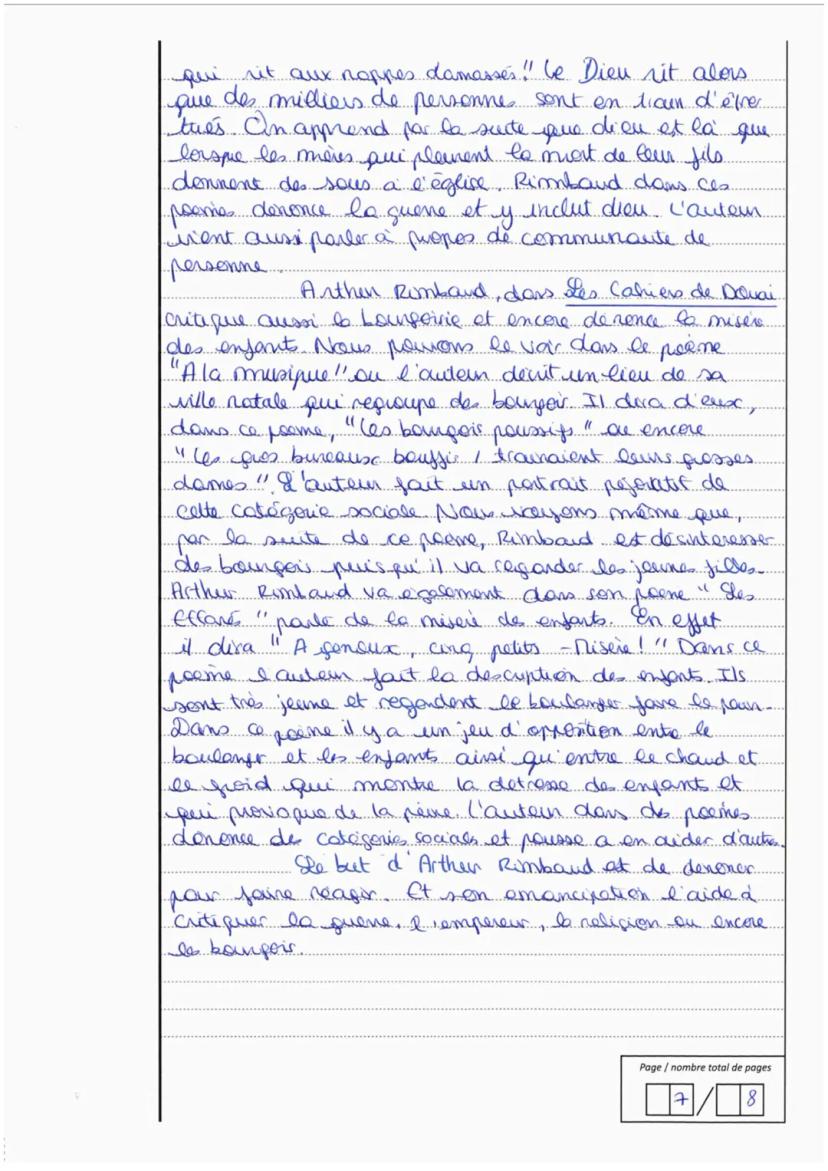 qui rit aux nappes damassés". Le Dieu rit alors
que des milliers de personnes sont en train d'être
tués. On apprend par la suite que dieu est là que
lorsque les mères qui pleurent la mort de leur fils
donnent des sous à l'église. Rimbaud dans ces
poèmes dénonce la guerre et y inclut dieu. L'auteur
vient aussi parler à propos de communauté de
personne.
Arthur Rimbaud, dans Les Cahiers de Douai
critique aussi la bourgoirie et encore dénonce la misère
des enfants. Nous pouvons le voir dans le poème
"A la musique" ou l'auteur décrit un lieu de sa
ville natale qui regroupe des bourgoir. Il dira d'eux,
dans ce poème, "Les bourgois poussifs" ou encore
"Les gros bureaux bouffis / trainaient leurs grosses
dames". L'auteur fait un portrait péjoratif de
cette catégorie sociale. Nous voyons même que,
par la suite de ce poème, Rimbaud est désinteresser
des bourgois puisqu'il va regarder les jeunes filles.
Arthur Rimbaud va egalement dans son poème "Les
Effarés" parle de la misère des enfants. En effet
il dira "A genoux, cinq petits - Misère!" Dans ce
poème l'auteur fait la description des enfants. Ils
sont très jeune et regardent le boulanger faire le pain.
Dans ce poème il y a un jeu d'opposition entre le
boulanger et les enfants ainsi qu'entre le chaud et
le froid qui montre la détresse des enfants et
qui provoque de la peine. L'auteur dans des poèmes
dénonce des catégories sociales et pousse a en aider d'autres.
Le but d'Arthur Rimbaud est de denoncer
pour faire réagir. Et son emancipation l'aide à
critiquer la guerre, l'empereur, la religion ou encore
les bourgois.
Page / nombre total de pages
7 / 8